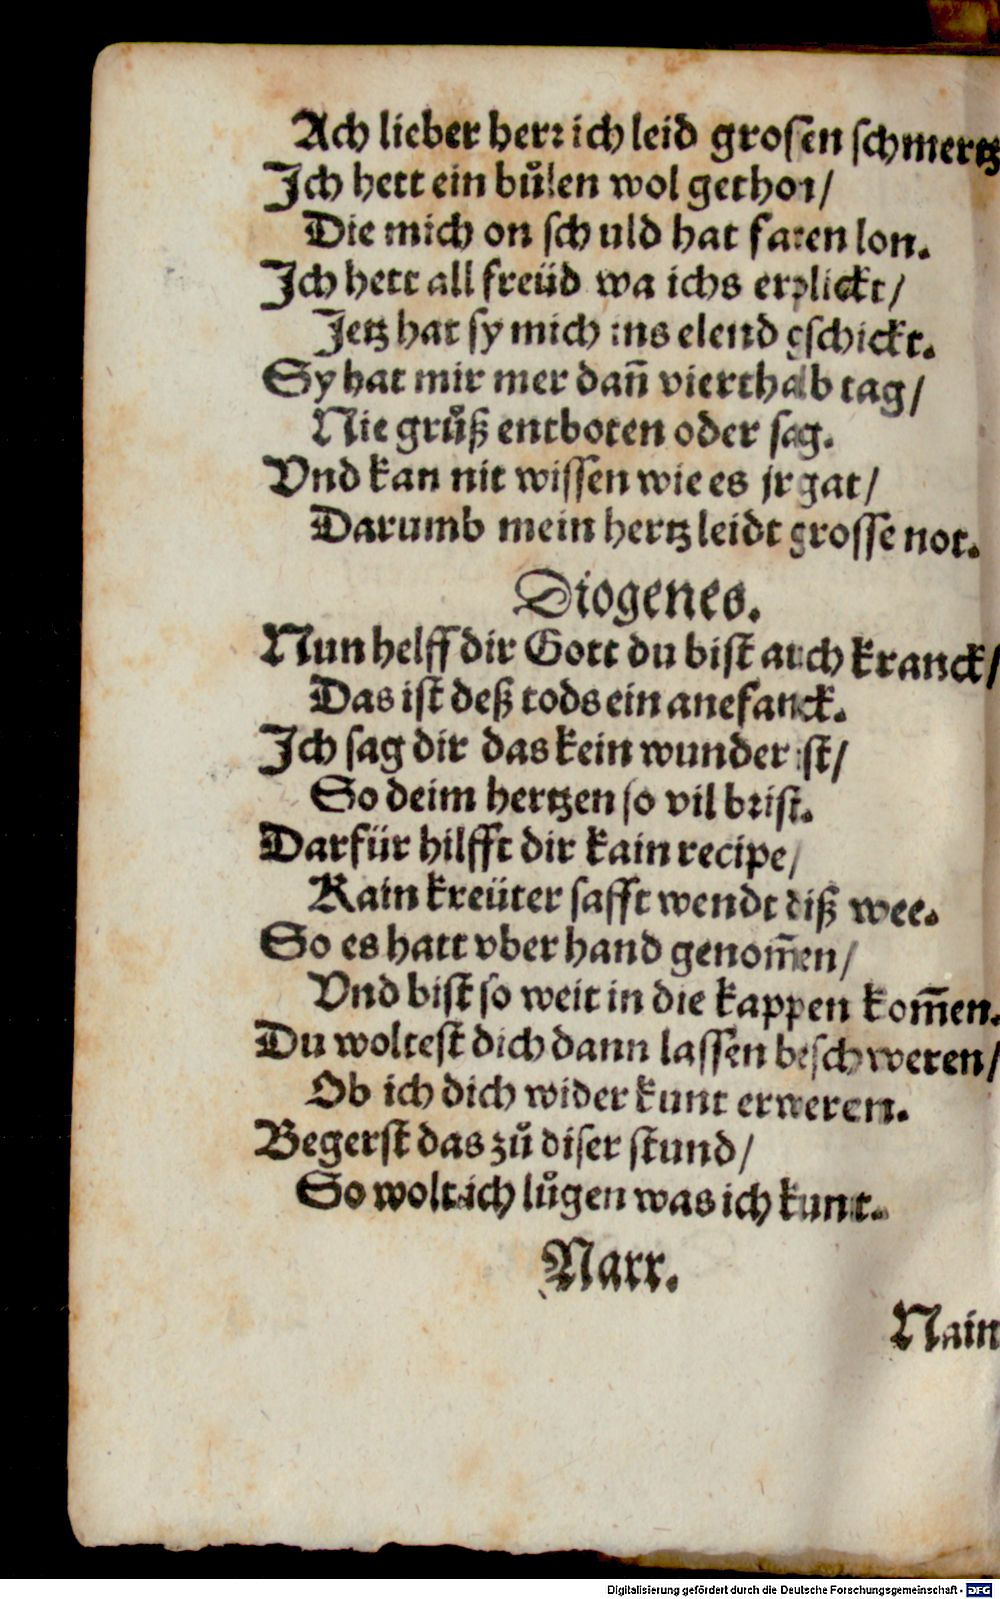 Ach lieber herꝛ ich leid grosen schmertz
Jch hett ein bůlen wol gethon/
Die mich on schuld hat faren lon.
Jch hett all freüd wa ichs erplickt/
Jetz hat sy mich ins elend gschickt.
Sy hat mir mer dañ vierthalb tag/
Nie grůß entboten oder sag.
Vnd kan nit wissen wie es jr gat/
Darumb mein hertz leidt grosse not.
Diogenes.
Nun helff dir Gott du bist auch kranck/
Das ist deß tods ein anefanck.
Jch sag dir das kein wunder ist/
So deim hertzen so vil bꝛist.
Darfür hilfft dir kain recipe/
Kain kreüter safft wendt diß wee.
So es hatt vber hand genom̃en/
Vnd bist so weit in die kappen kom̃en.
Du woltest dich dann lassen beschweren/
Ob ich dich wider kunt erweren.
Begerst das zů diser stund/
So wolt ich lůgen was ich kunt.
Narr.
Nain
Digitalisierung gefördert durch die Deutsche Forschungsgemeinschaft - DFG